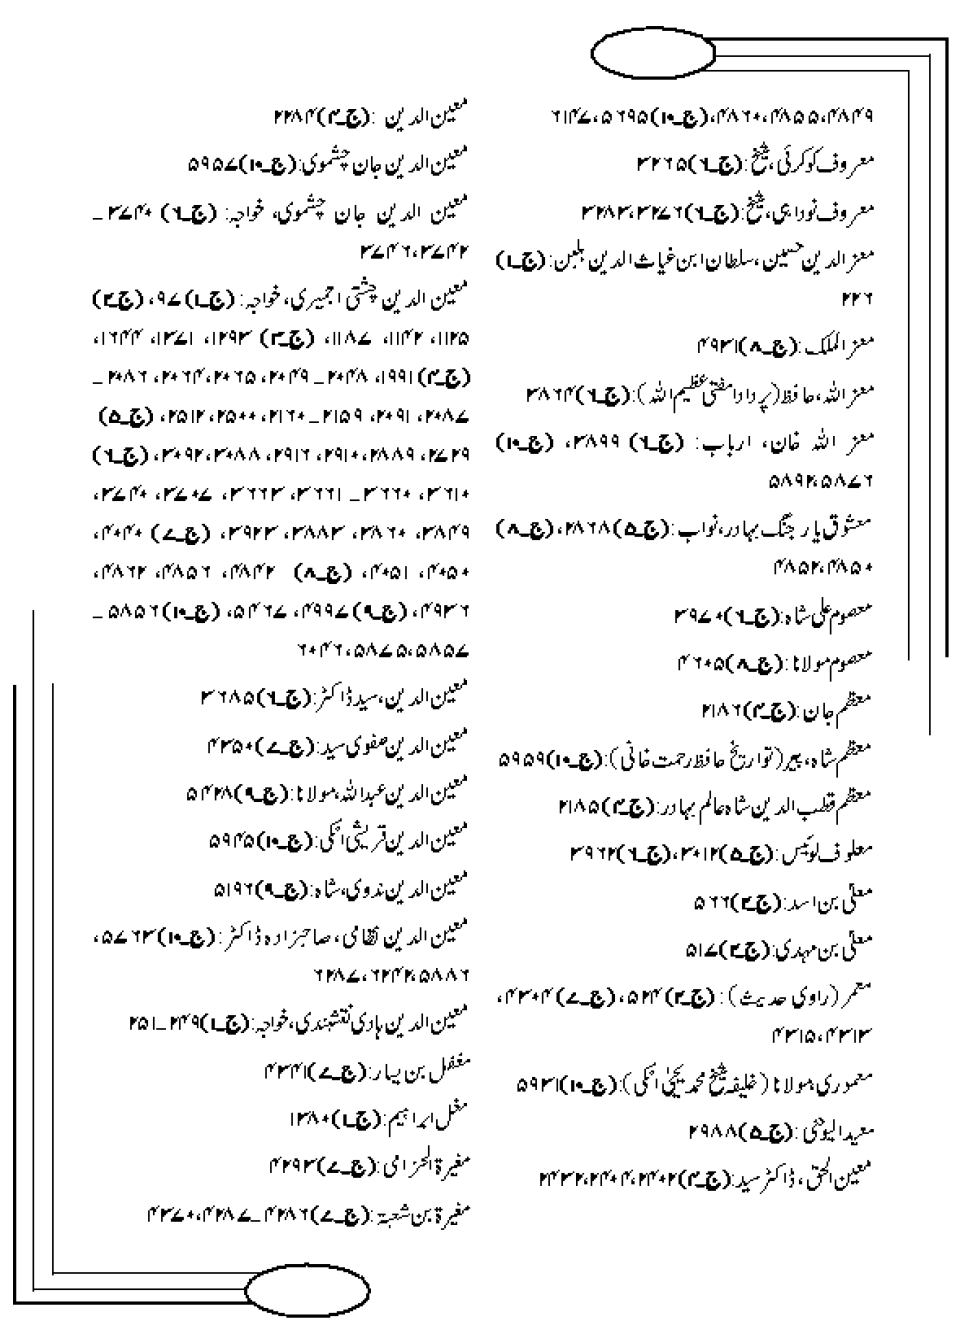 ۴۸۴۹،۴۸۵۵،۴۸۶۰،(ج۔۱۰)۵۶۹۵،۶۱۴۷
معروف کوکرئی، شیخ:(ج۔۶)۳۲۶۵
معروف نودابی، شیخ:(ج۔۶)۳۲۷۶،۳۲۸۳
معز الدین حسین، سلطان ابن غیاث الدین بلبن:(ج۔۱)
۲۲۶
معز الملک:(ج۔۸)۴۹۳۱
معز اللہ، حافظ(پردادا مفتی عظیم اللہ):(ج۔۶)۳۸۶۴
معز اللہ خان، ارباب: (ج۔۶) ۳۸۹۹، (ج۔۱۰)
۵۸۷۶،۵۸۹۲
معشوق یار جنگ بہادر، نواب:(ج۔۵)۲۸۶۸،(ج۔۸)
۴۸۵۰،۴۸۵۲
معصوم علی شاہ:(ج۔۶)۳۹۷۰
معصوم مولانا:(ج۔۸)۴۶۰۵
معظم جان:(ج۔۴)۲۱۸۶
معظم شاہ، پیر(تواریخ حافظ رحمت خانی):(ج۔۱۰)۵۹۵۹
معظم قطب الدین شاہ عالم بہادر:(ج۔۴)۲۱۸۵
معلوف لوئیس:(ج۔۵)۳۰۱۲،(ج۔۶)۳۹۶۲
معلّٰی بن اسد:(ج۔۲)۵۶۶
معلّٰی بن مہدی:(ج۔۲)۵۱۷
معمر(راوی حدیث): (ج۔۲)۵۲۴،(ج۔۷)۴۳۰۴،
۴۳۱۳،۴۳۱۵
معموری، مولانا(خلیفہ شیخ محمد یحییٰ اٹکی):(ج۔۱۰)۵۹۳۱
معید الیوحی:(ج۔۵)۲۹۸۸
معین الحق، ڈاکٹر سید:(ج۔۴)۲۴۰۲،۲۴۰۴،۲۴۳۲
معین الدین :(ج۔۴)۲۲۸۴
معین الدین جان چشموی:(ج۔۱۰)۵۹۵۷
معین الدین جان چشموی، خواجہ: (ج۔۶) ۳۷۴۰۔
۳۷۴۲،۳۷۴۶
معین الدین چشتی اجمیری، خواجہ: (ج۔۱)۹۷، (ج۔۲)
۱۱۲۵، ۱۱۴۲، ۱۱۸۷، (ج۔۳) ۱۲۹۳، ۱۳۷۱، ۱۶۴۴،
(ج۔۴)۱۹۹۱، ۲۰۴۸۔ ۲۰۴۹، ۲۰۶۵،۲۰۶۴، ۲۰۸۶۔
۲۰۸۷، ۲۰۹۱، ۲۱۵۹۔۲۱۶۰، ۲۵۰۰، ۲۵۱۲، (ج۔۵)
۲۷۲۹، ۲۸۸۹، ۲۹۱۰، ۲۹۱۶، ۳۰۸۸،۳۰۹۲، (ج۔۶)
۳۶۱۰، ۳۶۶۰۔ ۳۶۶۱، ۳۶۶۳، ۳۷۰۷، ۳۷۴۰،
۳۸۴۹، ۳۸۶۰، ۳۸۸۳، ۳۹۲۳، (ج۔۷) ۴۰۴۰،
۴۰۵۰، ۴۰۵۱، (ج۔۸) ۴۸۴۲، ۴۸۵۶، ۴۸۶۲،
۴۹۳۶، (ج۔۹)۴۹۹۷، ۵۴۶۷، (ج۔۱۰)۵۸۵۶۔
۵۸۵۷،۵۸۷۵، ۶۰۴۶
معین الدین، سید ڈاکٹر:(ج۔۶)۳۶۸۵
معین الدین صفوی سید:(ج۔۷)۴۳۵۰
معین الدین عبداللہ، مولانا:(ج۔۹)۵۴۲۸
معین الدین قریشی اٹکی:(ج۔۱۰)۵۹۴۵
معین الدین ندوی، شاہ:(ج۔۹)۵۱۹۶
معین الدین نظامی، صاحبزادہ ڈاکٹر:(ج۔۱۰)۵۷۶۳،
۵۸۸۶،۶۲۴۲،۶۲۸۷
معین الدین ہادی نقشبندی، خواجہ:(ج۔۱)۲۴۹۔۲۵۱
مغفل بن یسار:(ج۔۷)۴۳۴۱
مغل ابراہیم:(ج۔۱)۱۳۸۰
مغیرۃ الحزامی:(ج۔۷)۴۲۹۳
مغیرۃ بن شعبۃ:(ج۔۷)۴۲۸۶۔۴۲۸۷،۴۳۷۰